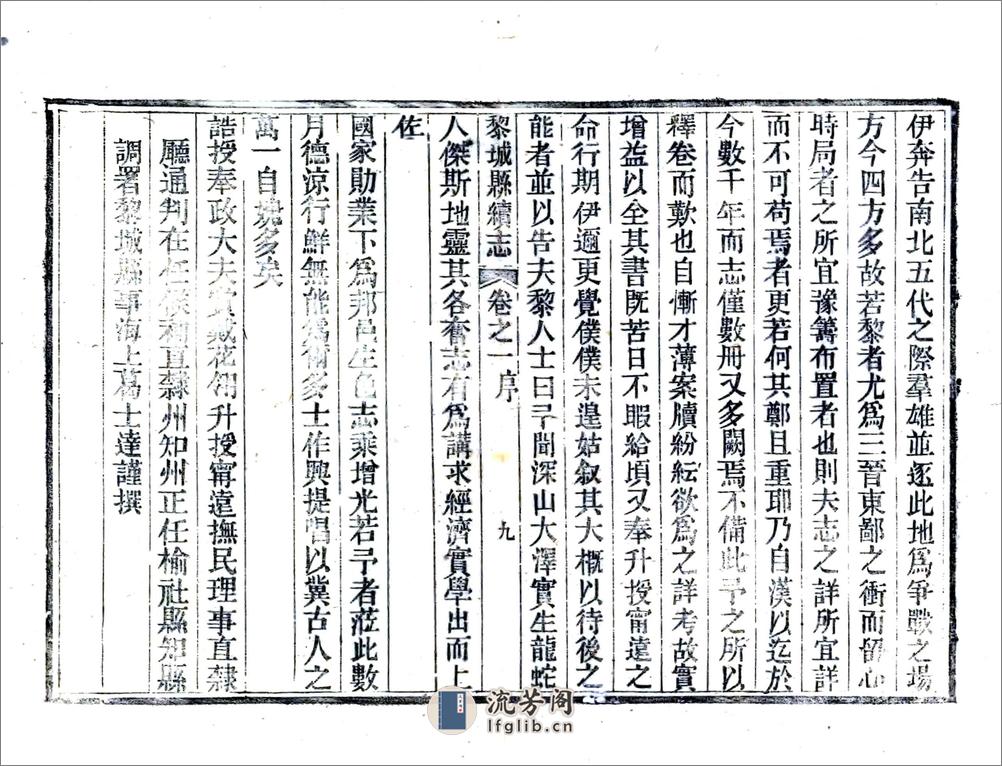 伊奔告南北五代之際羣雄並逐此地爲爭戰之場
方今四方多故若黎者尤爲三晉東鄙之衝而留心
時局者之所宜豫籌布置者也則夫志之詳所宜詳
而不可苟焉者更若何其鄭且重耶乃自漢以迄於
今數千年而志僅數冊又多闕焉不備此予之所以
釋卷而歎也自慚才薄案牘紛紜欲爲之詳考故實
增益以全其書旣苦日不暇給頃又奉升授甯遠之
命行期伊邇更覺僕僕未遑姑敘其大概以待後之
能者並以告夫黎人士曰予聞深山大澤實生龍蛇
黎城縣續志 卷之一 序 九
人傑斯地靈其各奮志有爲講求經濟實學出而上
佐
國家勛業下爲邦邑生色志乘增光若予者蒞此數
月德涼行鮮無能爲爾多士作興提唱以冀古人之
萬一自媿多矣
誥授奉政大夫賞戴花翎升授甯遠撫民理事直隸
廳通判在任候補直隸州知州正任榆社縣知縣
調署黎城縣事海上葛士達謹撰
流芳阁
lfglib.cn